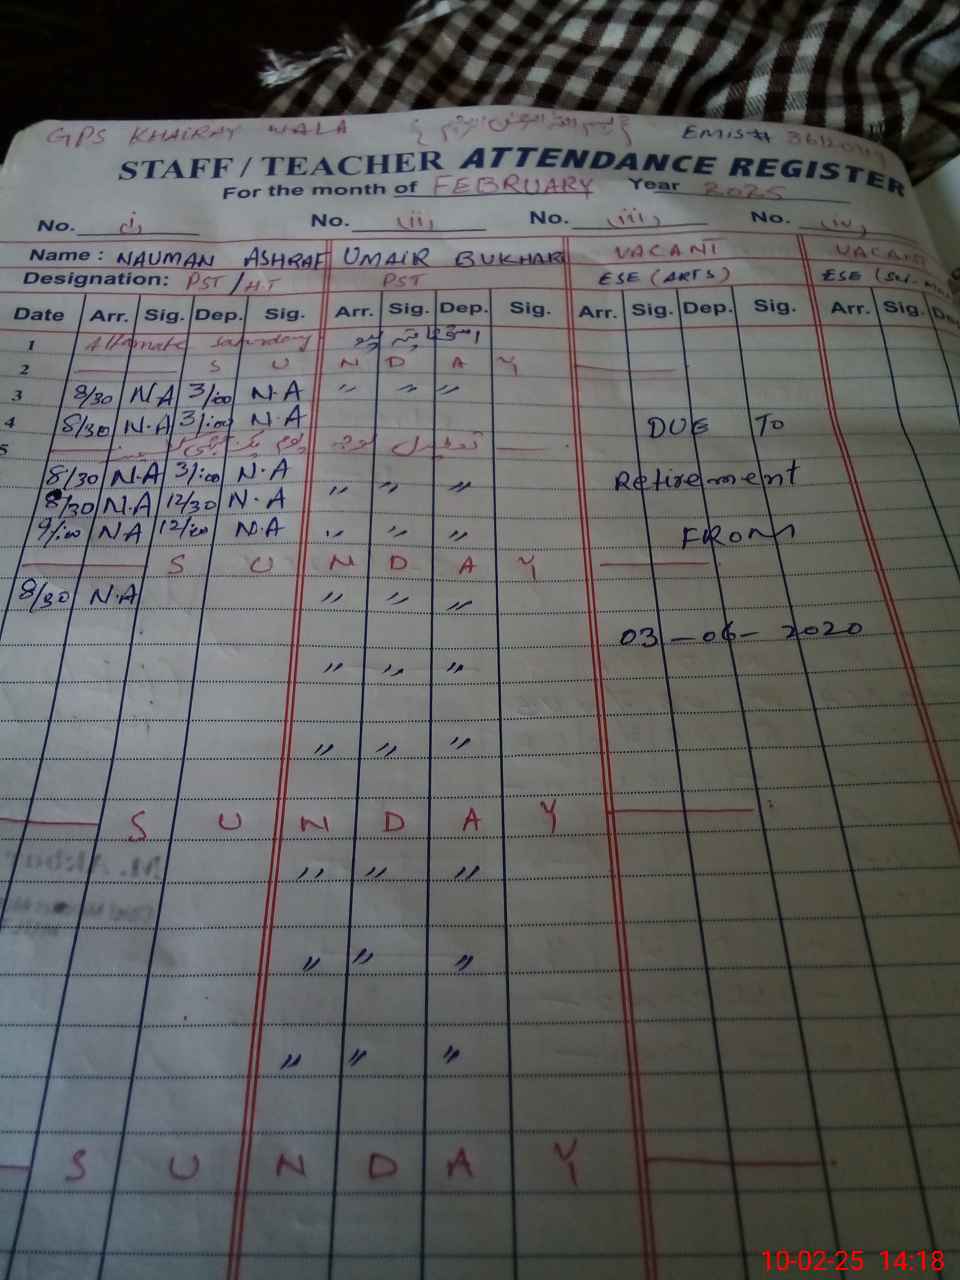 GPS KHAIRAY WALA EMIS#
STAFF / TEACHER ATTENDANCE REGISTER
For the month of FEBRUARY Year 2025
No. i, No. (ii, No. (iii, No. (iv,
Name : NAUMAN ASHRAF UMAIR BUKHARI VACANT VACANT
Designation: PST/HT PST ESE (ARTS) ESE (Sci-
Date Arr. Sig. Dep. Sig. Arr. Sig. Dep. Sig. Arr. Sig. Dep. Sig. Arr. Sig. Dep
1 Alternate Saturday
2 S U N D A Y
3 8/30 N A 3/:00 N.A " " "
4 8/30 N.A 3/:00 N.A DUE To
5 تعطیل
8/30 N.A 3/:00 N.A Retirement
8/30 N.A 12/30 N.A " " "
9/:00 N A 12/:00 N.A " " " FROM
S U N D A Y
8/30 N.A " " "
03-06-2020
" " "
" " "
S U N D A Y
" " "
" " "
" " "
S U N D A Y
10-02-25 14:18